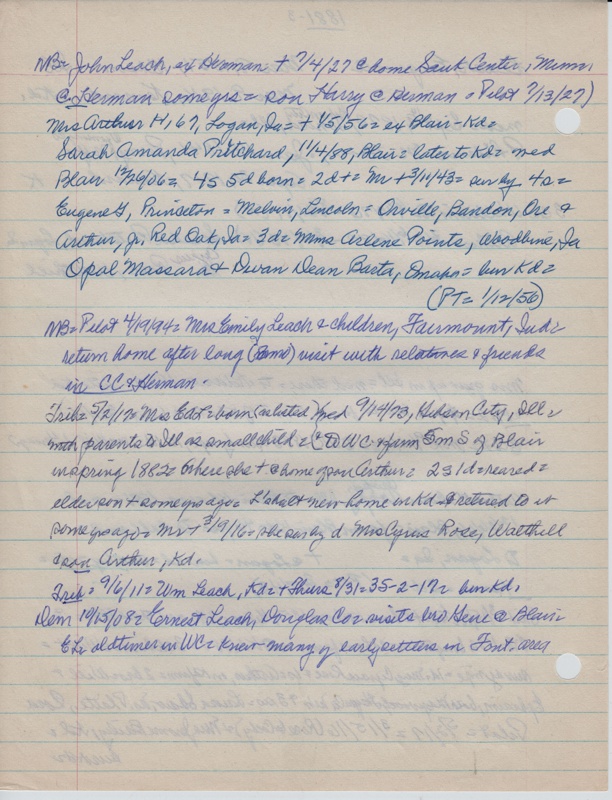 NB= John Leach, ex Herman + 7/4/27 @ home Sauk Center, Minn,
@ Herman some yrs= son Harry @ Herman = Pilot 7/13/27)
Mrs Arthur H, 67, Logan, Ia= + 1/5/56= ex Blair= Kd=
Sarah Amanda Pritchard, 11/4/88, Blair= later to Kd= wed
Blair 12/26/06= 4s 5d born= 2d+= Mr + 3/11/43= sur by 4s=
Eugene G, Princeton= Melvin, Lincoln= Orville, Bandon, Ore &
Arthur, Jr, Red Oak, Ia= 3d= Mmes Arlene Points, Woodbine, Ia
Opal Massara & Dwan Dean Barta, Omaha= bur Kd=
(PT= 1/12/56)
NB= Pilot 4/19/94= Mrs Emily Leach & children, Fairmount, Ind=
return home after long visit with relatives & friends
in CC & Herman.
Trib= 5/2/17= Mrs East= born (as listed) wed 9/14/73, Hudson City, Ill=
with parents to Ill as small child= to WC & farm 5m S of Blair
in spring 1882= where she + @ home of son Arthur= 2s 1d= reared=
elder son + some yrs ago= L's had new home in Kd & retired to it
some yrs ago= Mr + 3/9/16= she sur by d Mrs Cyrus Rose, Walthill
& son Arthur, Kd.
Trib= 9/6/11= Wm Leach, Kd= + Thurs 8/31= 35-2-17= bur Kd,
Dem 10/15/08= Earnest Leach, Douglas Co= visits bro Here @ Blair
EL= oldtimer in WC= knew many of early settlers in Font. area